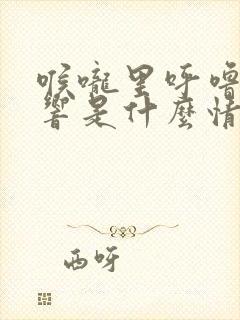 喉嚨里呼嚕
響是什麼情
西呀